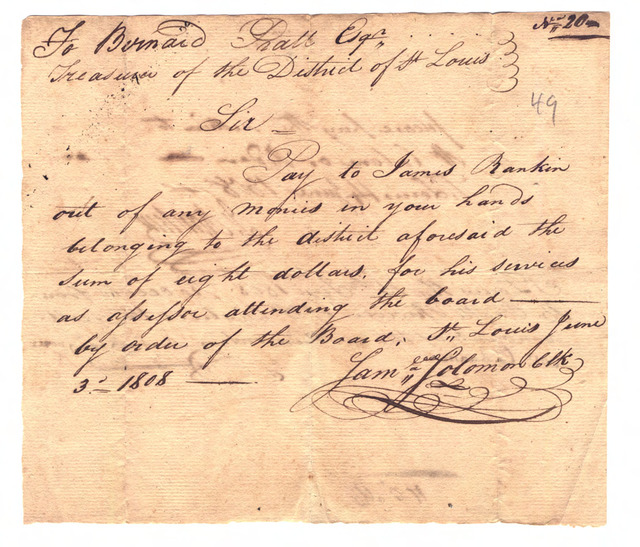 No. 20
To Bernard Pratt Esqr.
Treasurer of the District of St Louis
49
Sir
Pay to James Rankin
out of any monies in your hands
belonging to the district aforesaid the
sum of eight dollars, for his services
as assessor attending the board
by order of the Board, St. Louis June
3d. 1808
Solomon Clk